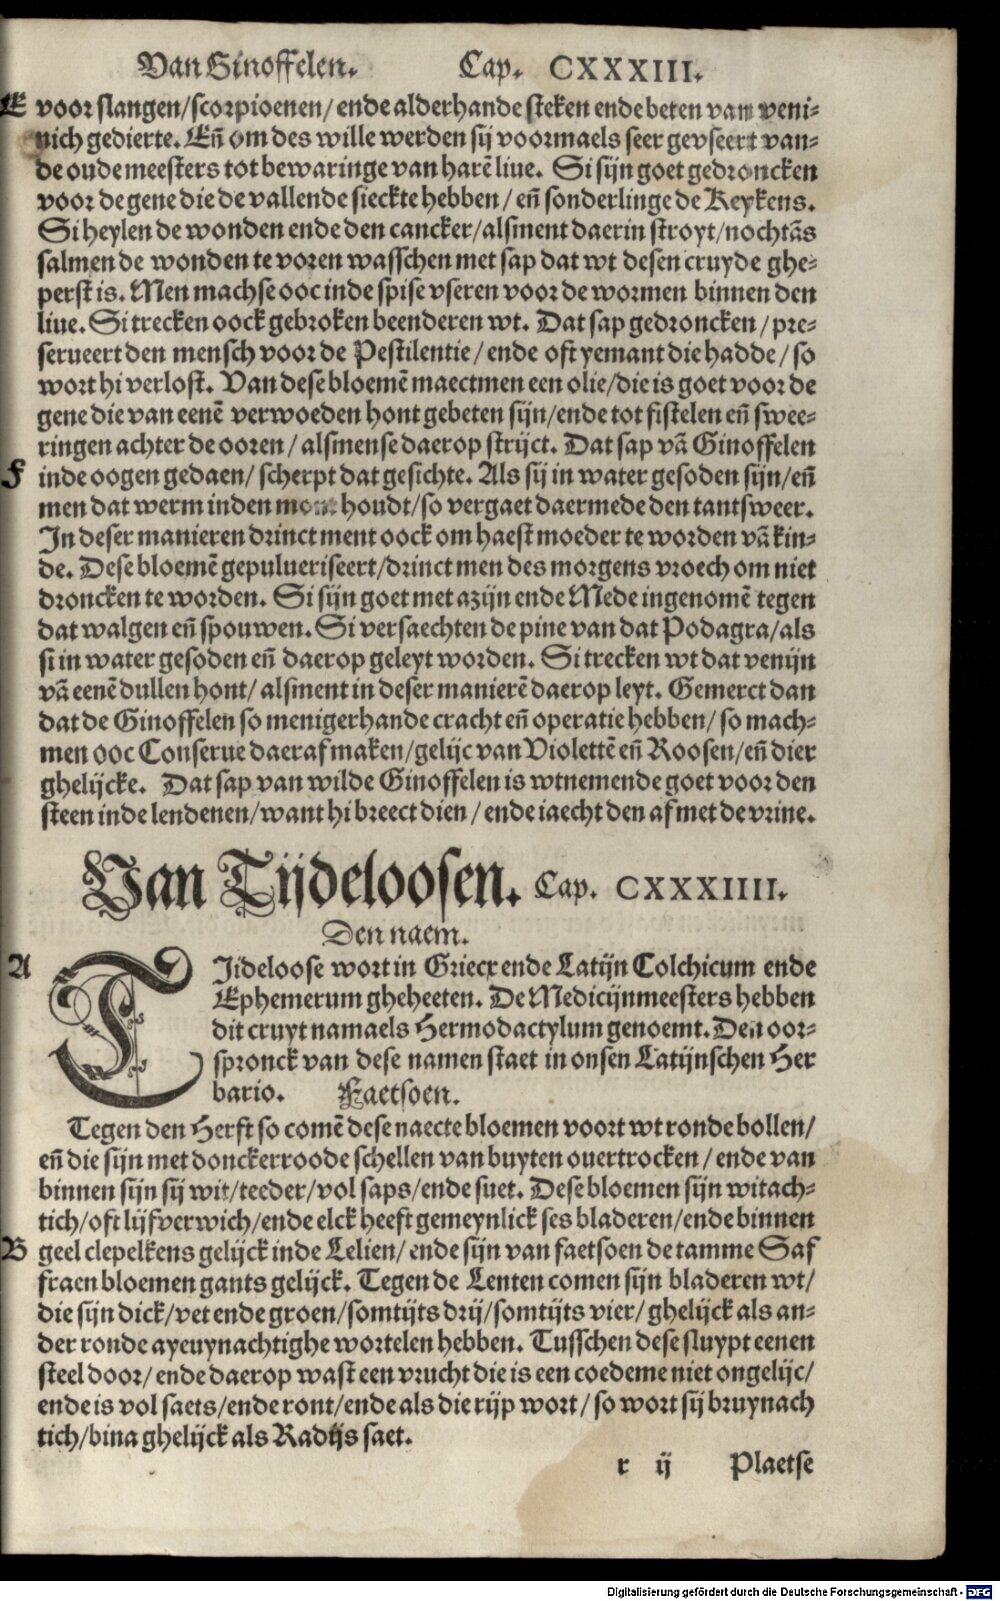 Van Ginoffelen. Cap. CXXXIII.
E voor slangen/scorpioenen/ende alderhande steken ende beten van veni-
nich gedierte. Eñ om des wille werden sij voormaels seer gevseert van-
de oude meesters tot bewaringe van harē liue. Si sijn goet gedroncken
voor de gene die de vallende sieckte hebben/eñ sonderlinge de Keykens.
Si heylen de wonden ende den cancker/alsment daer in stroyt/nochtās
salmen de wonden te voren wasschen met sap dat wt desen cruyde ghe-
perst is. Men machse ooc inde spise vseren voor de wormen binnen den
liue. Si trecken oock gebroken beenderen wt. Dat sap gedroncken/pre-
serueert den mensch voor de Pestilentie/ende oft yemant die hadde/so
wort hi verlost. Van dese bloemē maectmen een olie/die is goet voor de
gene die van eenē verwoeden hont gebeten sijn/ende tot fistelen eñ swee-
ringen achter de ooren/alsmense daer op strijct. Dat sap vā Ginoffelen
F inde oogen gedaen/scherpt dat gesichte. Als sij in water gesoden sijn/eñ
men dat werm inden mont houdt/so vergaet daermede den tantsweer.
In deser manieren drinct ment oock om haest moeder te worden vā kin-
de. Dese bloemē gepulueriseert/drinct men des morgens vroech om niet
droncken te worden. Si sijn goet met azijn ende Mede ingenomē tegen
dat walgen eñ spouwen. Si versaechten de pine van dat Podagra/als
si in water gesoden eñ daer op geleyt worden. Si trecken wt dat venijn
vā eenē dullen hont/alsment in deser manierē daer op leyt. Gemerct dan
dat de Ginoffelen so menigerhande cracht eñ operatie hebben/so mach-
men ooc Conserue daer af maken/gelijc van Violettē eñ Roosen/eñ dier
ghelijcke. Dat sap van wilde Ginoffelen is wtnemende goet voor den
steen inde lendenen/want hi breect dien/ende iaecht den af met de vrine.
Van Tijdeloosen. Cap. CXXXIIII.
Den naem.
A TIideloose wort in Griecx ende Latijn Colchicum ende
Ephemerum gheheeten. De Medicijnmeesters hebben
dit cruyt namaels Hermodactylum genoemt. Den oor-
spronck van dese namen staet in onsen Latijnschen Her
bario. Faetsoen.
Tegen den Herfst so comē dese naecte bloemen voort wt ronde bollen/
eñ die sijn met donckerroode schellen van buyten ouertrocken/ende van
binnen sijn sij wit/teeder/vol saps/ende suet. Dese bloemen sijn witach-
tich/oft lijfverwich/ende elck heeft gemeynlick ses bladeren/ende binnen
B geel clepelkens gelijck inde Lelien/ende sijn van faetsoen de tamme Saf
fraen bloemen gants gelijck. Tegen de Lenten comen sijn bladeren wt/
die sijn dick/vet ende groen/somtijts drij/somtijts vier/ghelijck als an-
der ronde ayeuynachtighe wortelen hebben. Tusschen dese sluypt eenen
steel door/ende daer op wast een vrucht die is een coedeme niet ongelijc/
ende is vol saets/ende ront/ende als die rijp wort/so wort sij bruynach
tich/bina ghelijck als Radijs saet.
r ij Plaetse
Digitalisierung gefördert durch die Deutsche Forschungsgemeinschaft - DFG